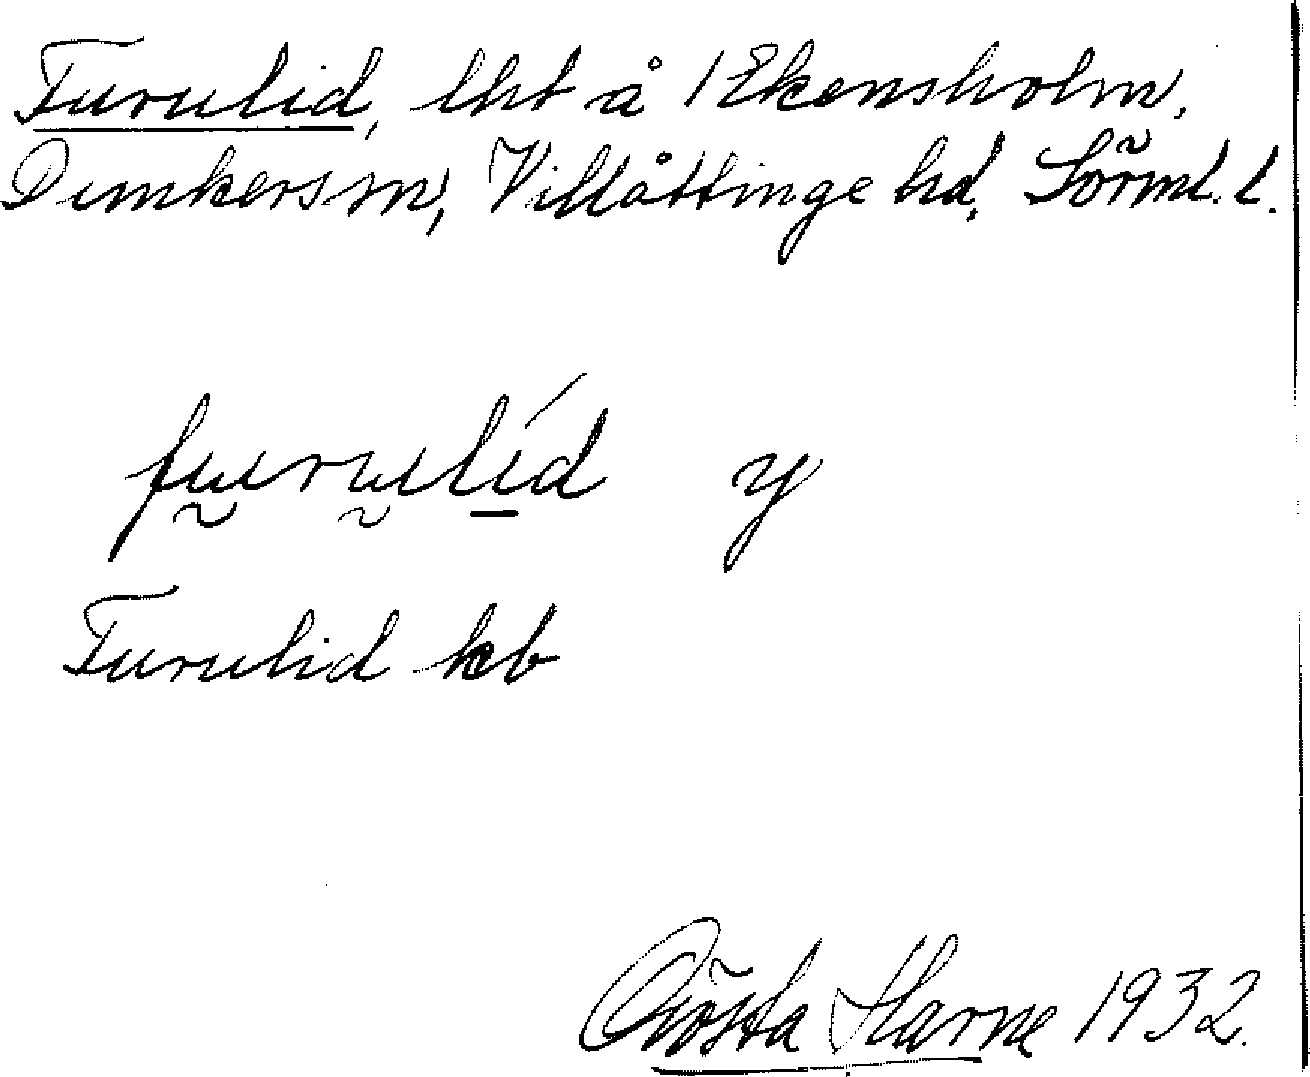 Furulid, lht å 1 Ekensholm,
Dunkers sn, Villåttinge hd, Sörml. l.
furulíd y
Furulid kb
Gösta Harne 1932.